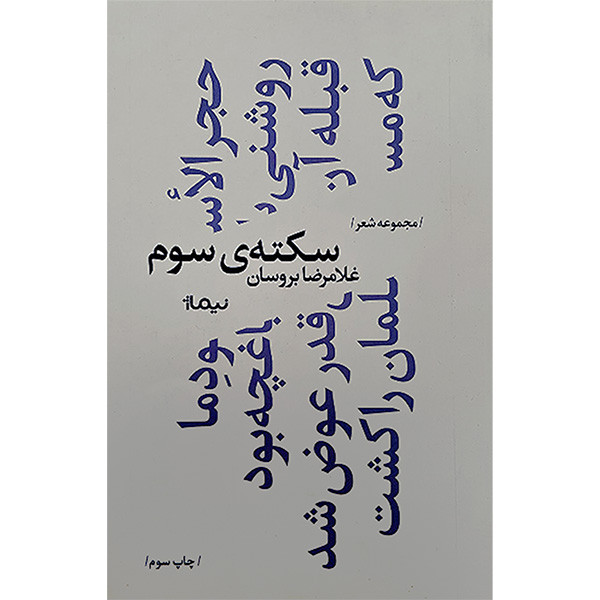 حجر الأسودِ ما
روشنی باغچه بود
قبله آن قدر عوض شد
که مسلمان را کشت
/ مجموعه شعر /
سکته‌ی سوم
غلامرضا بروسان
نیماژ
/ چاپ سوم /